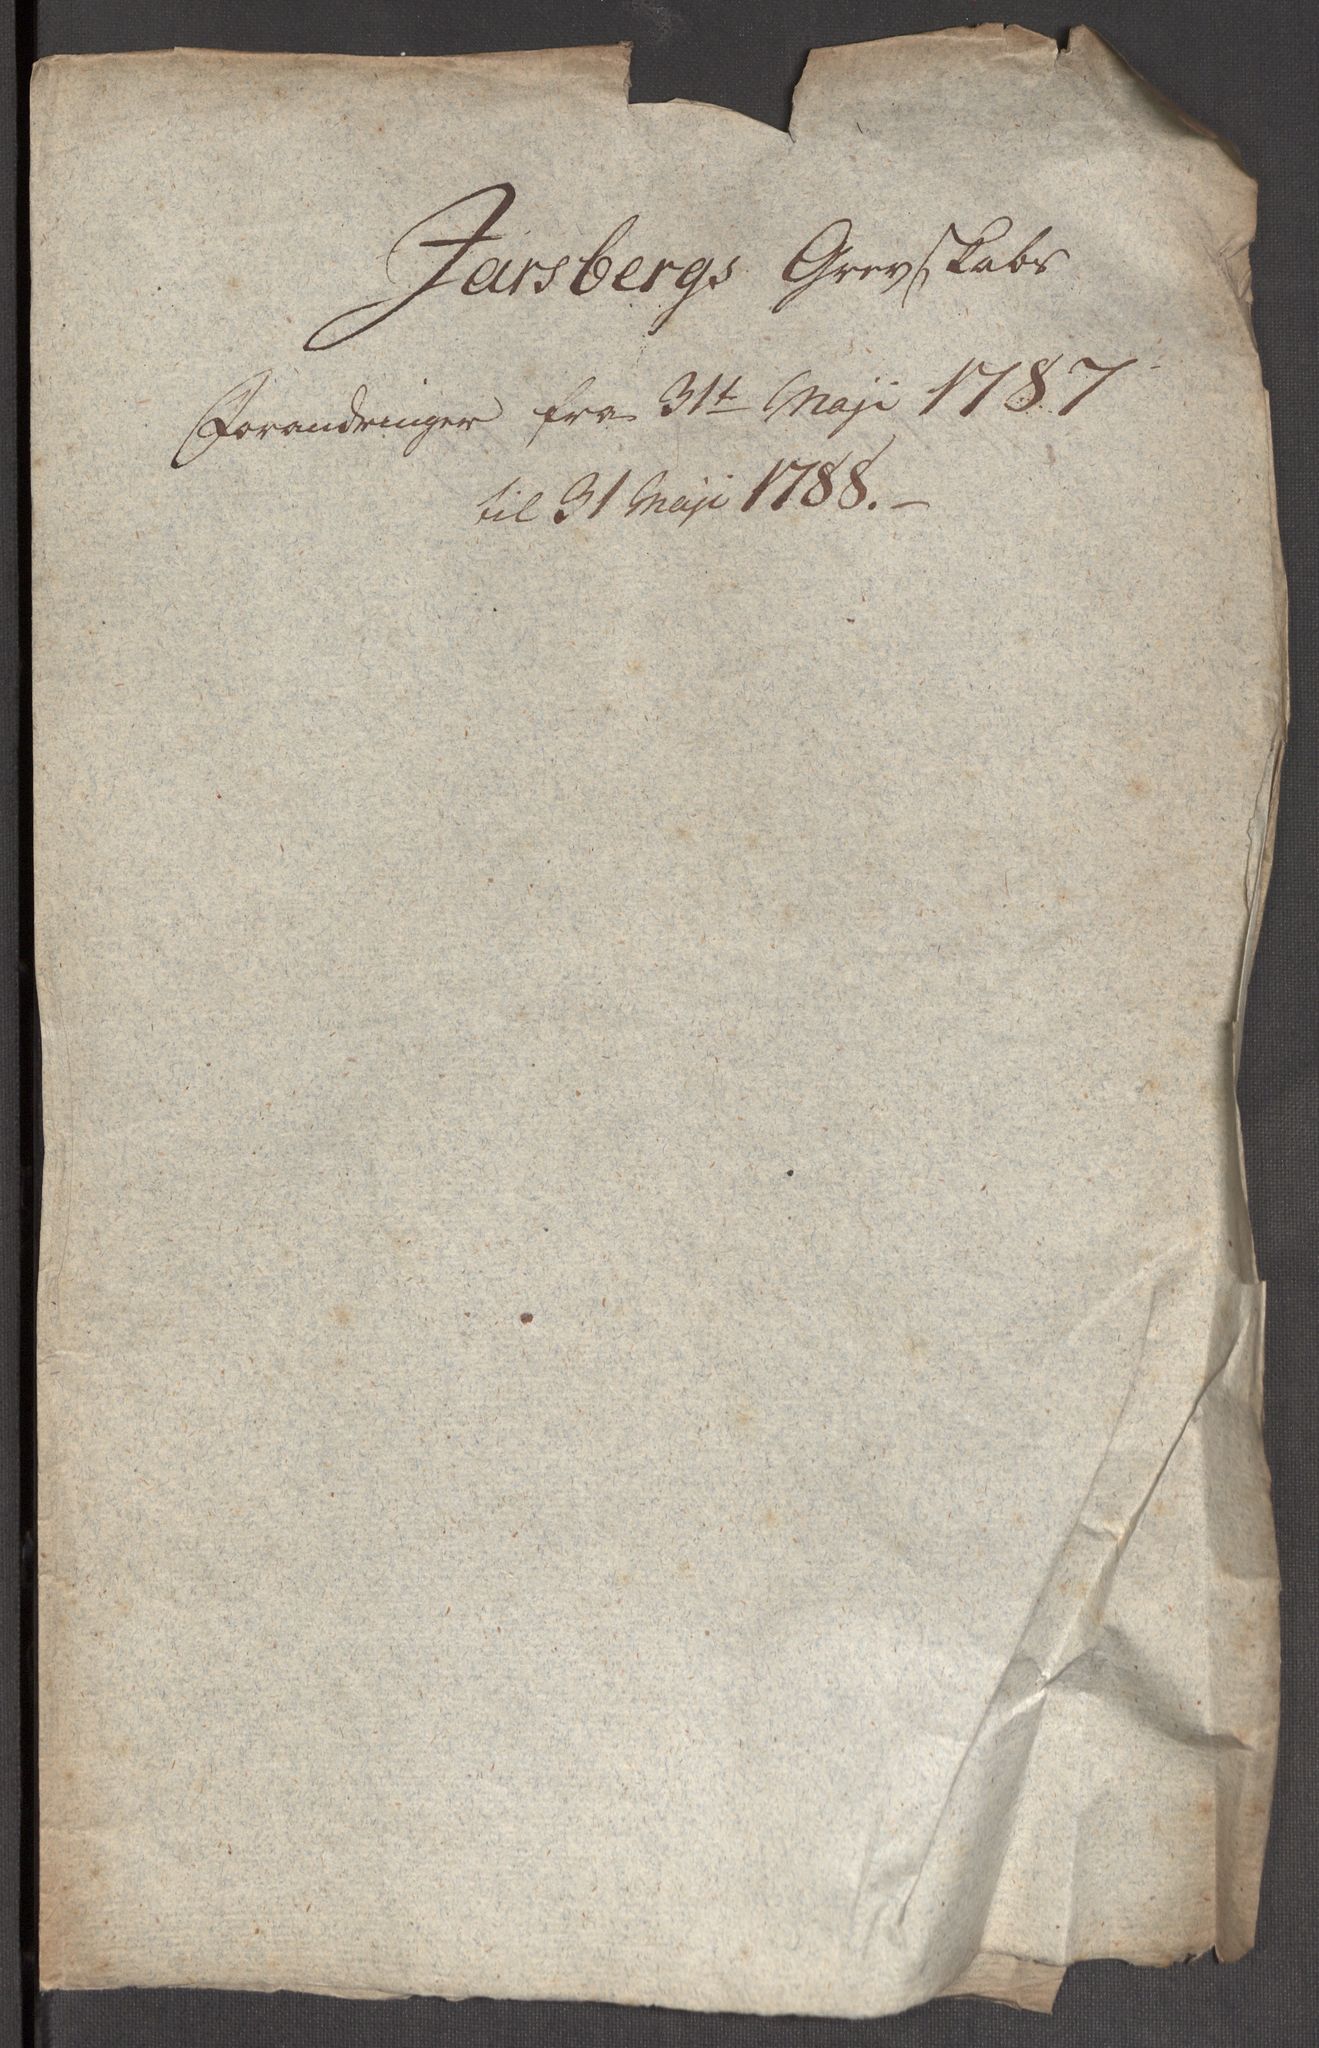 Jarsbergs Grevskabs
Forandringer fra 31t Maji 1787
til 31 Maji 1788.–